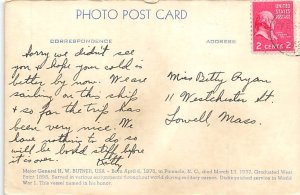 PHOTO POST CARD
CORRESPONDENCE
ADDRESS
UNITED STATES
POSTAGE
2 CENTS 2
Sorry we didn't see
you & hope your cold is
better by now. We are
sailing on this ship
& so far the trip has
been very nice. We
have nothing to do so
will be bored stiff before
it's over.
Miss Betty Bryan
11 Westchester St.
Lowell Mass.
Major General H. W. BUTNER, USA - Born April 6, 1875, in Pinnacle, N. C., died March 13, 1937. Graduated West
Point 1898. Served with various departments throughout world during military career. Distinguished service in World
War I. This vessel named in his honor.